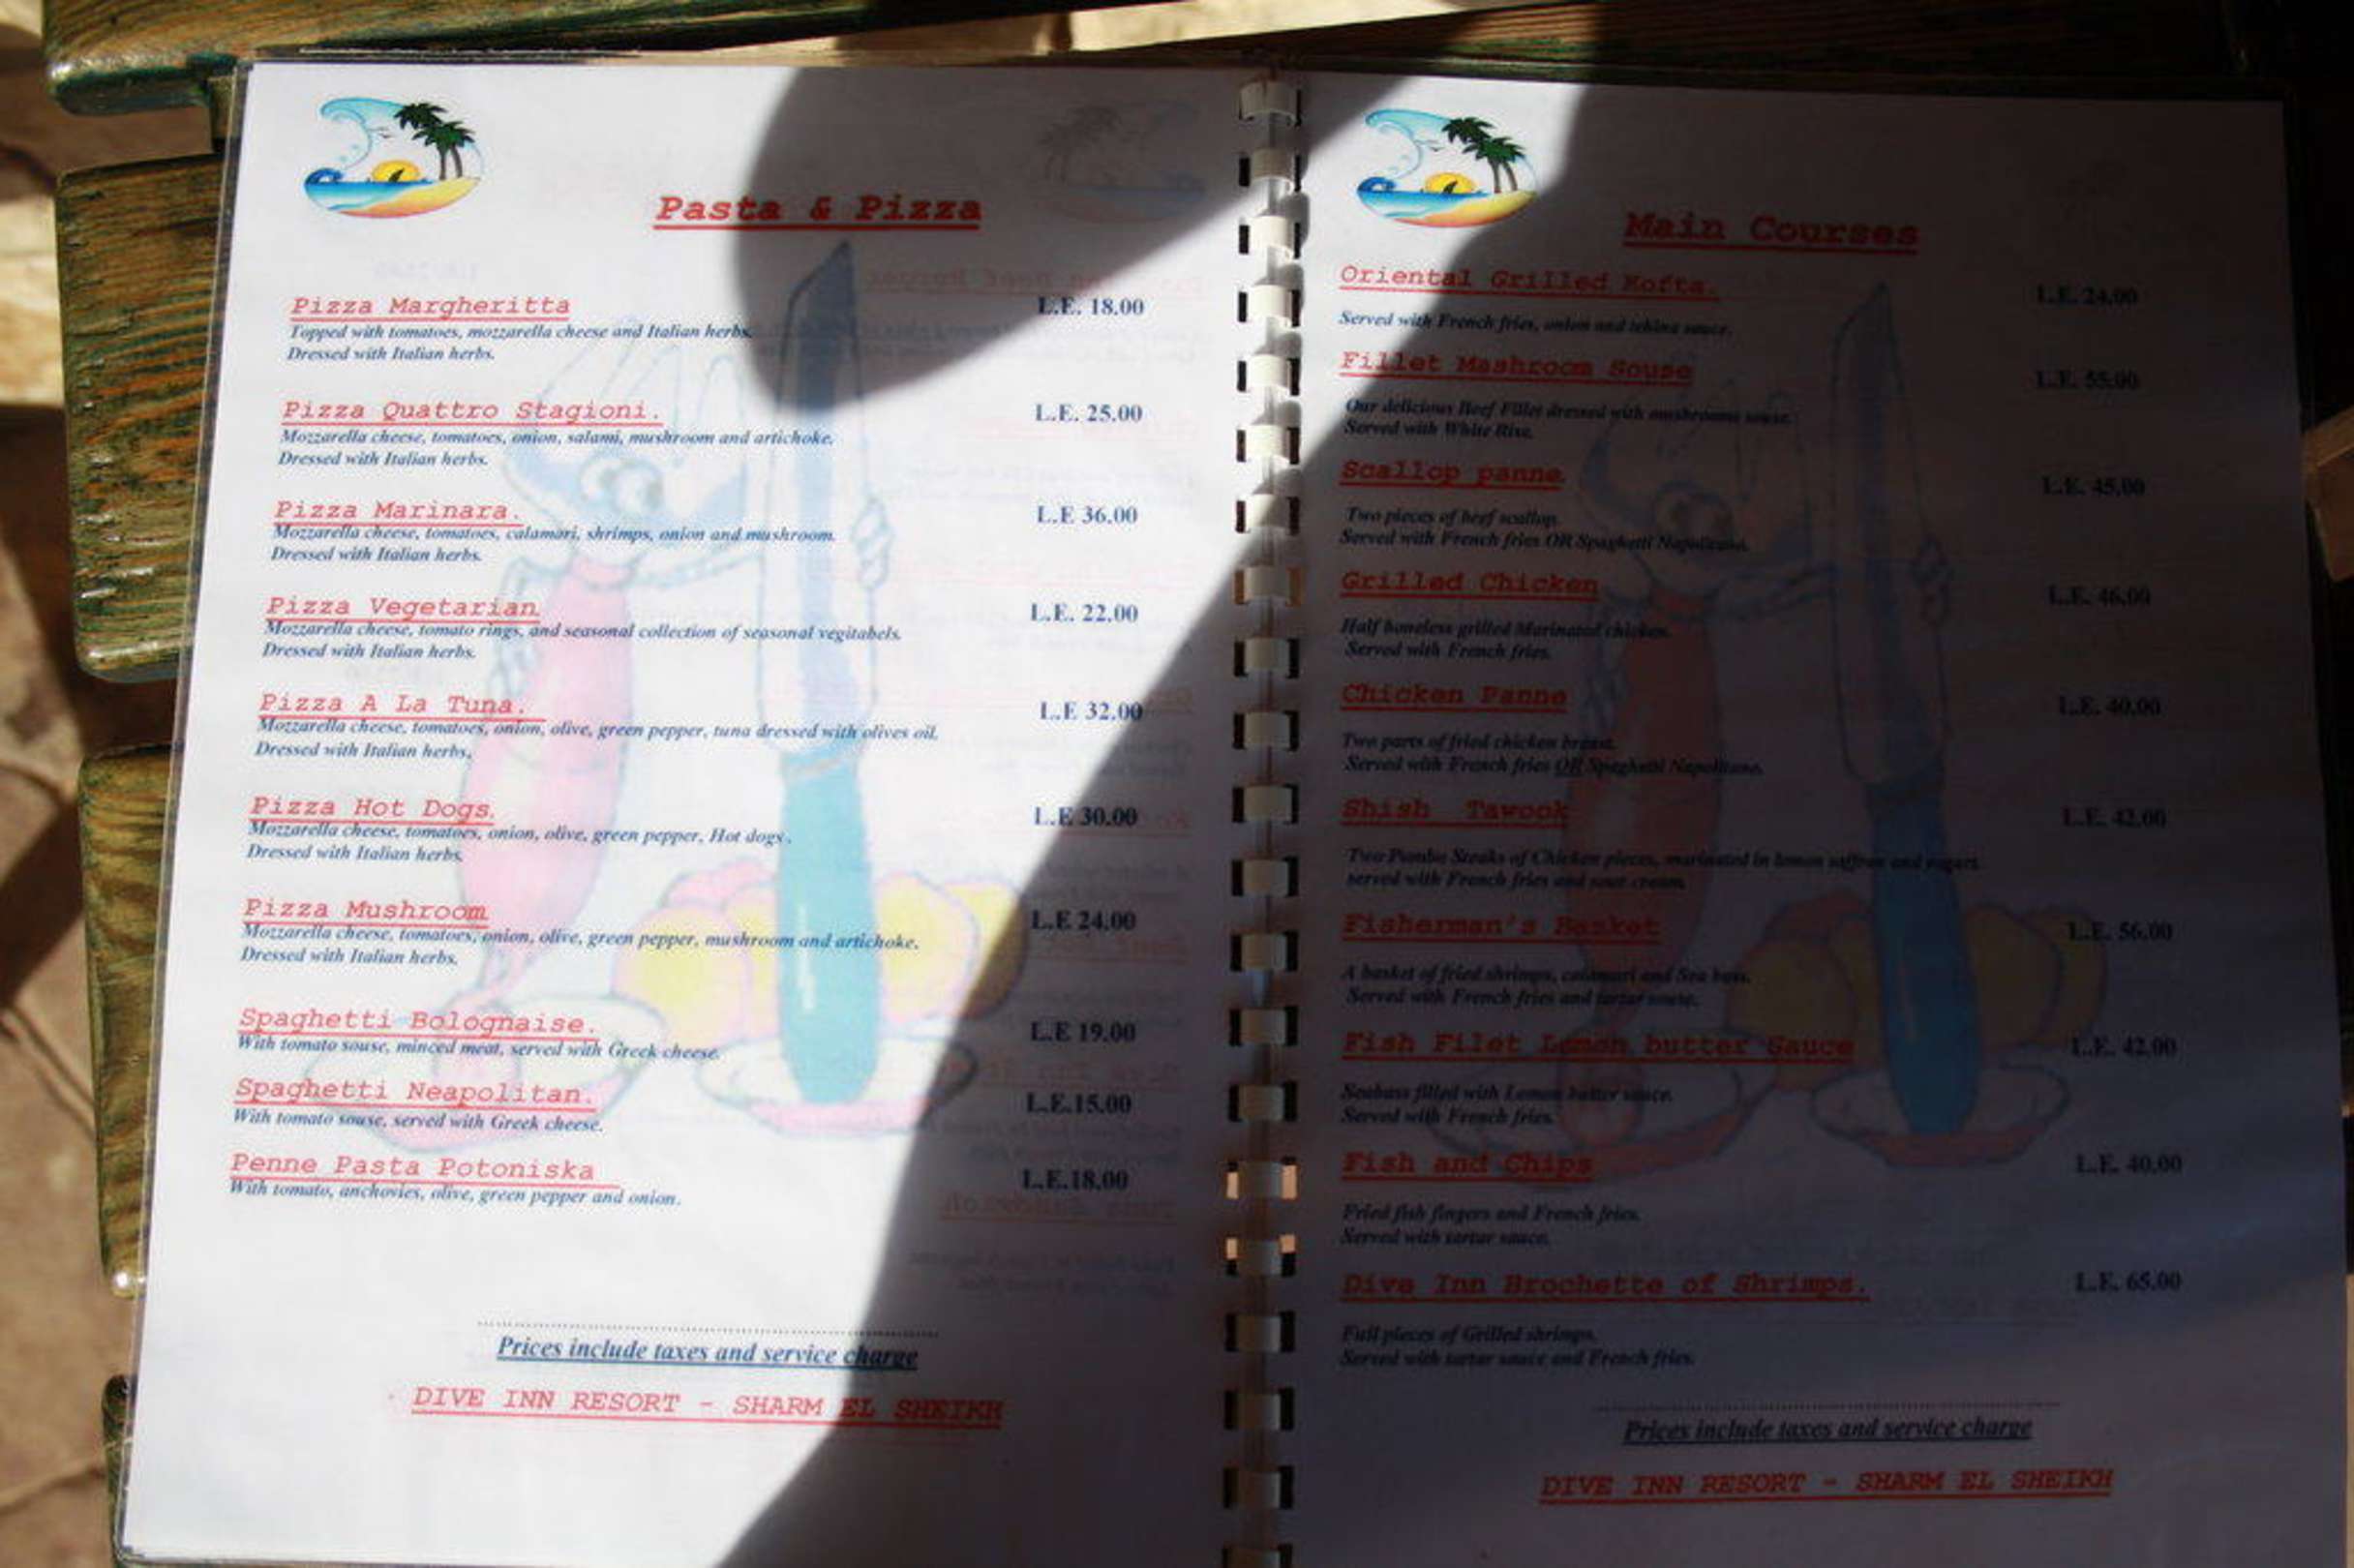 Pasta & Pizza
Pizza Margheritta L.E. 18.00
Topped with tomatoes, mozzarella cheese and Italian herbs.
Dressed with Italian herbs.
Pizza Quattro Stagioni. L.E. 25.00
Mozzarella cheese, tomatoes, onion, salami, mushroom and artichoke.
Dressed with Italian herbs.
Pizza Marinara. L.E 36.00
Mozzarella cheese, tomatoes, calamari, shrimps, onion and mushroom.
Dressed with Italian herbs.
Pizza Vegetarian L.E. 22.00
Mozzarella cheese, tomato rings, and seasonal collection of seasonal vegitabels.
Dressed with Italian herbs.
Pizza A La Tuna. L.E 32.00
Mozzarella cheese, tomatoes, onion, olive, green pepper, tuna dressed with olives oil.
Dressed with Italian herbs.
Pizza Hot Dogs. L.E 30.00
Mozzarella cheese, tomatoes, onion, olive, green pepper, Hot dogs.
Dressed with Italian herbs.
Pizza Mushroom L.E 24.00
Mozzarella cheese, tomatoes, onion, olive, green pepper, mushroom and artichoke.
Dressed with Italian herbs.
Spaghetti Bolognaise. L.E 19.00
With tomato souse, minced meat, served with Greek cheese.
Spaghetti Neapolitan. L.E.15.00
With tomato souse, served with Greek cheese.
Penne Pasta Potoniska L.E.18.00
With tomato, anchovies, olive, green pepper and onion.
Prices include taxes and service charge
DIVE INN RESORT - SHARM EL SHEIKH
Main Courses
Oriental Grilled Kofta. L.E. 24.00
Served with French fries, onion and tehina sauce.
Fillet Mashroom Souse L.E. 55.00
Our delicious Beef Fillet dressed with mushrooms souse.
Served with White Rise.
Scallop panne L.E. 45.00
Two pieces of beef scallop.
Served with French fries OR Spaghetti Napolitano.
Grilled Chicken L.E. 46.00
Half boneless grilled Marinated chicken.
Served with French fries.
Chicken Panne L.E. 40.00
Two parts of fried chicken breast.
Served with French fries OR Spaghetti Napolitano.
Shish Tawook L.E. 42.00
Two Steaks of Chicken pieces, marinated in lemon saffron and yogurt
served with French fries and sour cream.
Fisherman's Basket L.E. 56.00
A basket of fried shrimps, calamari and Sea bass.
Served with French fries and tartar souse.
Fish Filet Lemon butter Sauce L.E. 42.00
Seabass filled with Lemon butter sauce.
Served with French fries.
Fish and Chips L.E. 40.00
Fried fish fingers and French fries.
Served with tartar sauce.
Dive Inn Brochette of Shrimps. L.E. 65.00
Full pieces of Grilled shrimps.
Served with tartar sauce and French fries.
Prices include taxes and service charge
DIVE INN RESORT - SHARM EL SHEIKH